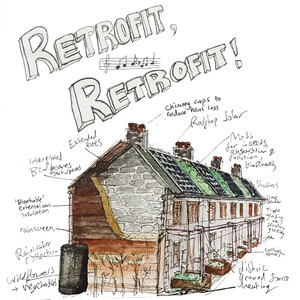 RETROFIT,
RETROFIT!
Chimney caps to
reduce heat loss
Rooftop solar
Extended
eaves
Moss
for insects,
absorption &
pollution,
biodiversity
Integrated
Bird boxes
Shutters
"Breathable"
external wall
insulation
rainscreen
Rainwater
collection
Wildflowers
+ vegetables
district
ground source
heating